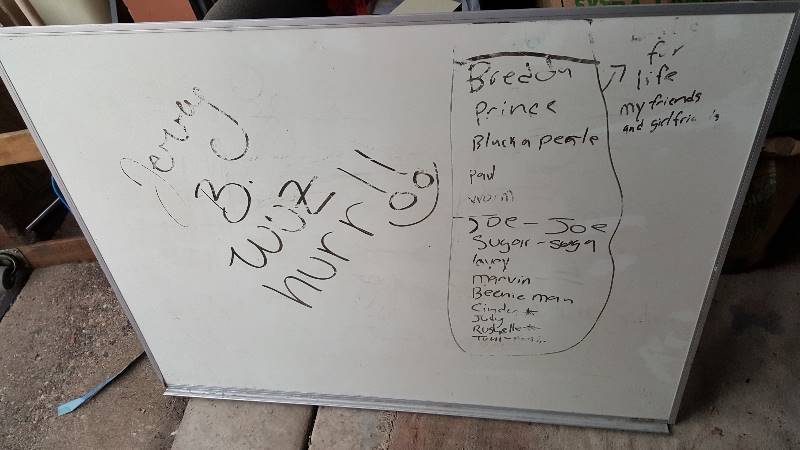 Jerry
B.
Wuz
hurr!!
Bredun
Prince
Black a pearle
paul
worm
Joe - Joe
Sugar - suga
marvin
Beenie man
Cinder *
Judy
for
life
my friends
and